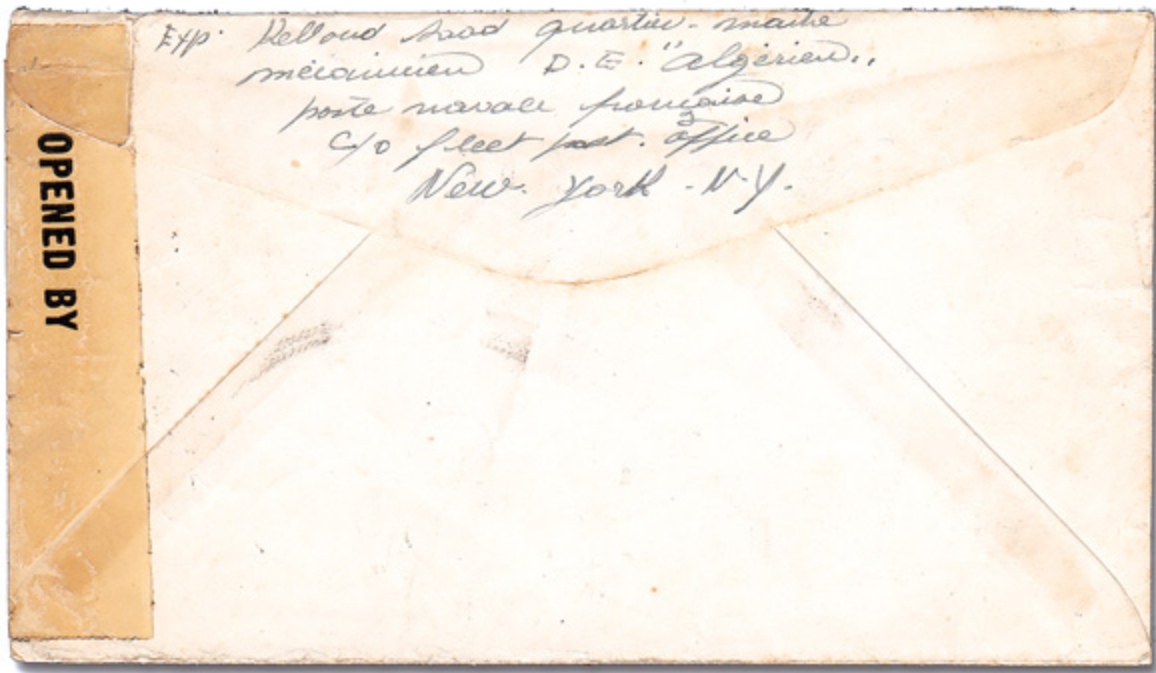 Exp. Kelloud Saad quartier-maitre
mécanicien D.E. "Algérien"
poste navale française
c/o fleet post. office
New. York - N-Y.
OPENED BY